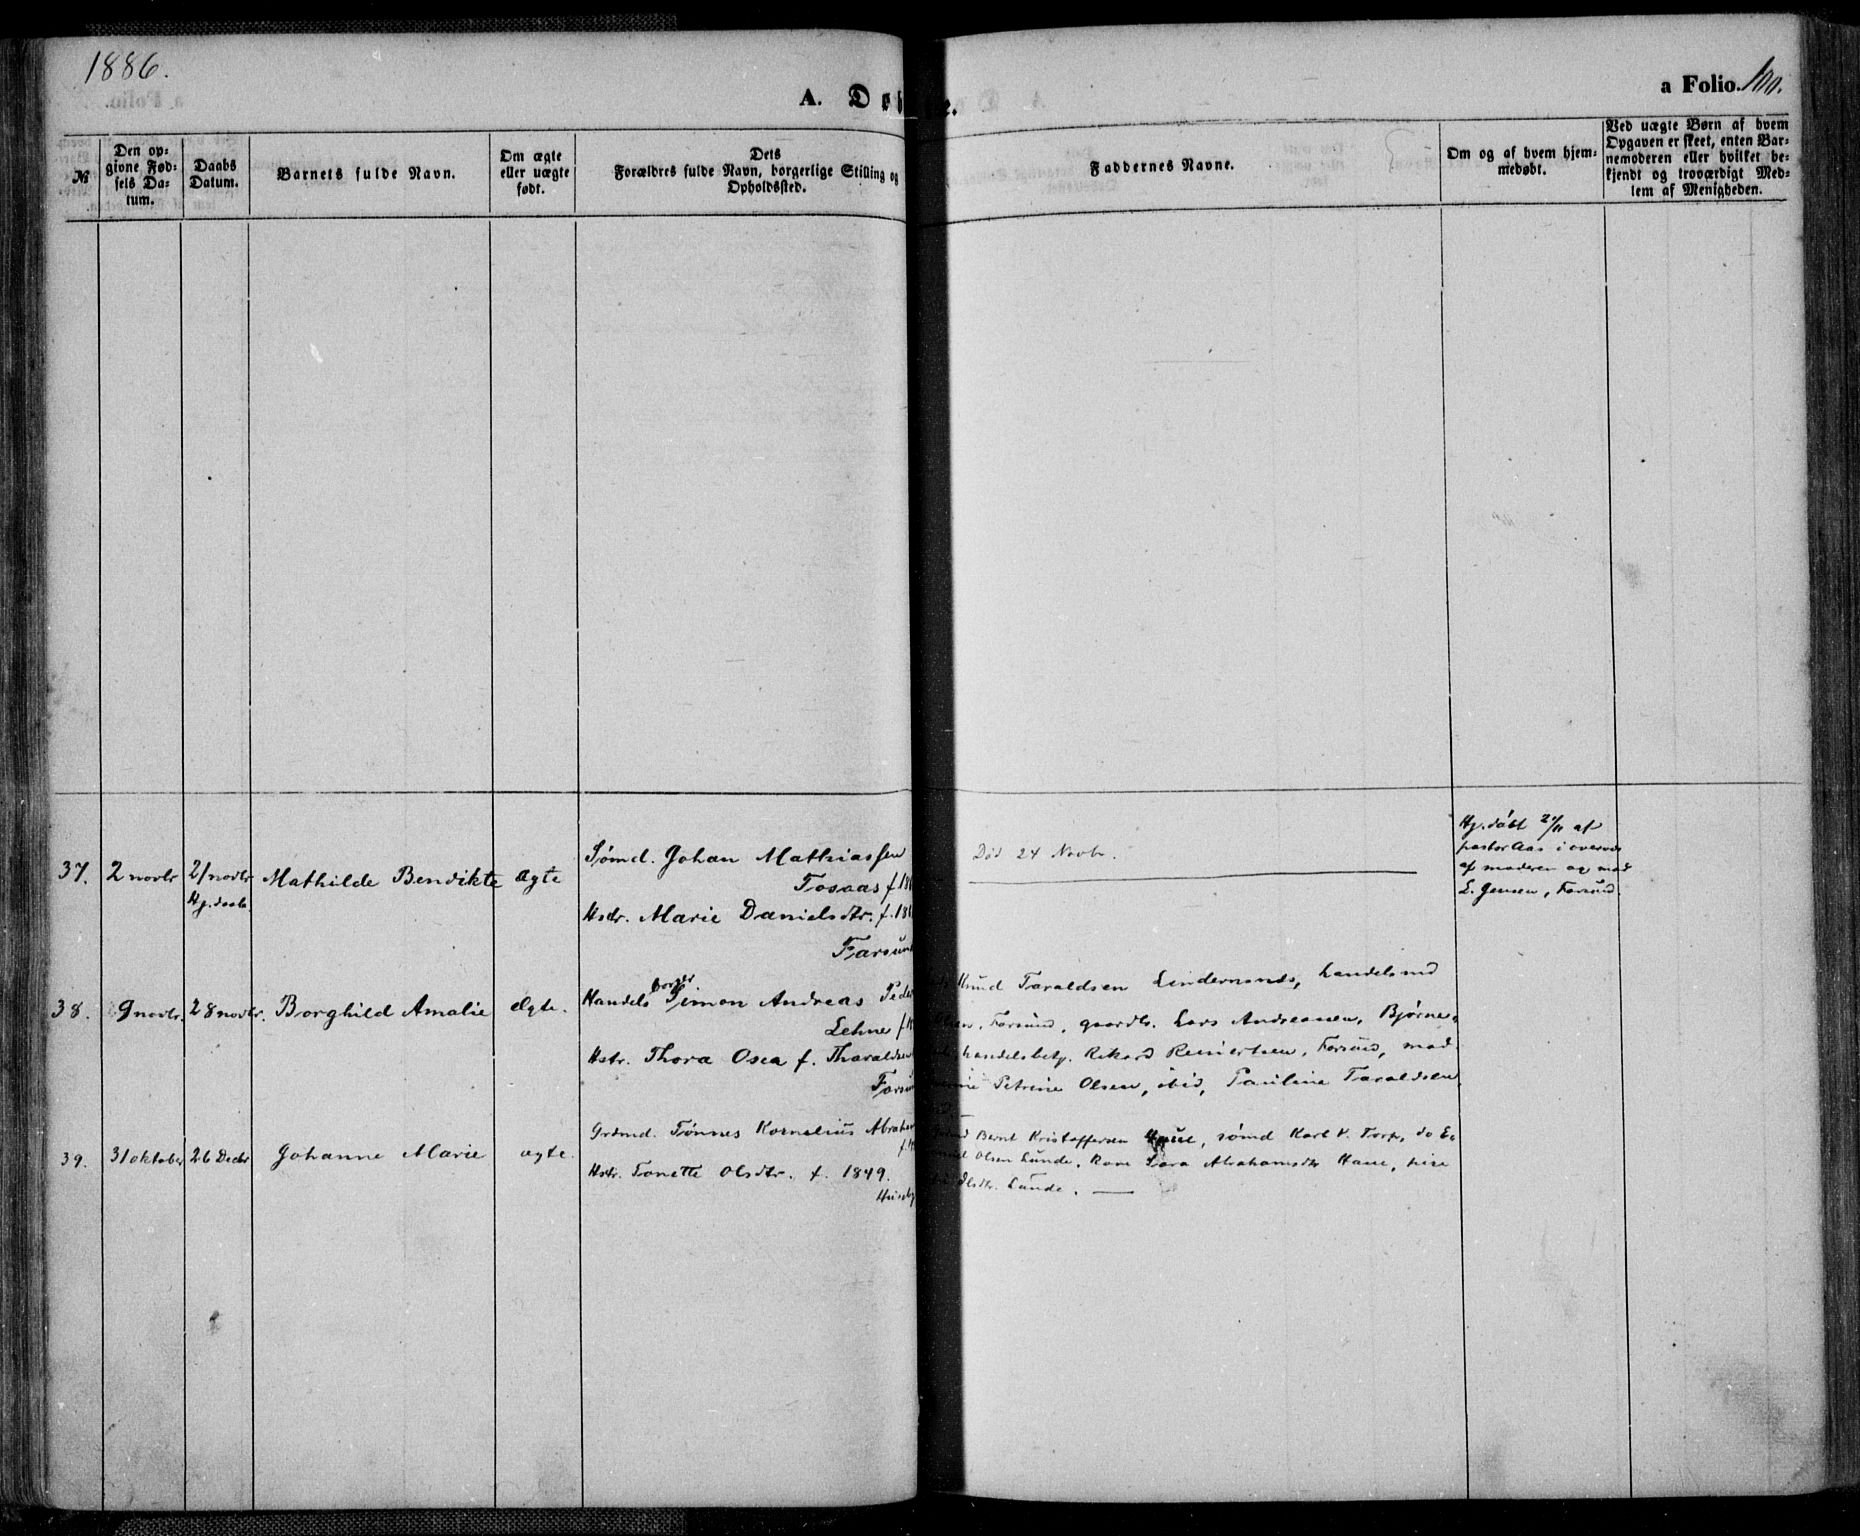 1886.
A. Døbte.
a Folio. 100.
№
Den op-
givne Fød-
sels Da-
tum.
Daabs
Datum.
Barnets fulde Navn.
Om ægte
eller uægte
født.
Dets
Forældres fulde Navn, borgerlige Stilling og
Opholdssted.
Faddernes Navne.
Om og af hvem hjem-
medøbt.
Ved uægte Børn af hvem
Opgaven er skeet, enten Bar-
nemoderen eller hvilket be-
kjendt og troværdigt Med-
lem af Menigheden.
37.
2 novbr
21 novbr
Hj. daab.
Mathilde Bendikte
ægte
Sømd. Johan Mathiassen
Tosaas f. 18
Hstr. Marie Danielsdtr. f. 18
Farsund
Død 24 Novbr.
Hj. døbt 21/11 af
pastor Aas i overvær
af moderen og mad
L. Jensen, Farsund.
38.
9 novbr.
28 novbr.
Borghild Amalie
ægte.
Handelsborger Simon Andreas Peder
Lehne f.
Hstr. Thora Osea f. Tharaldsen
Farsund
Knud Taraldsen Lindernæs, handelsmd
Olsen, Farsund, gaardbr. Lars Andreasen, Bjørne-
handelsbetj. Rikard Reinertsen, Farsund, mad.
Petrine Olsen, ibid, Pauline Taraldsen
39.
31 oktober
26 Decbr
Johanne Marie
ægte.
Grdmd. Tønnes Kornelius Abraham
Hstr. Tonette Olsdtr. f. 1849.
Huseby
Bernt Kristoffersen Haue, sømd Karl K. Torp, do E-
Olsen Lunde, Kone Sara Abrahamsdtr Haue, pige
Olsdtr. Lunde.